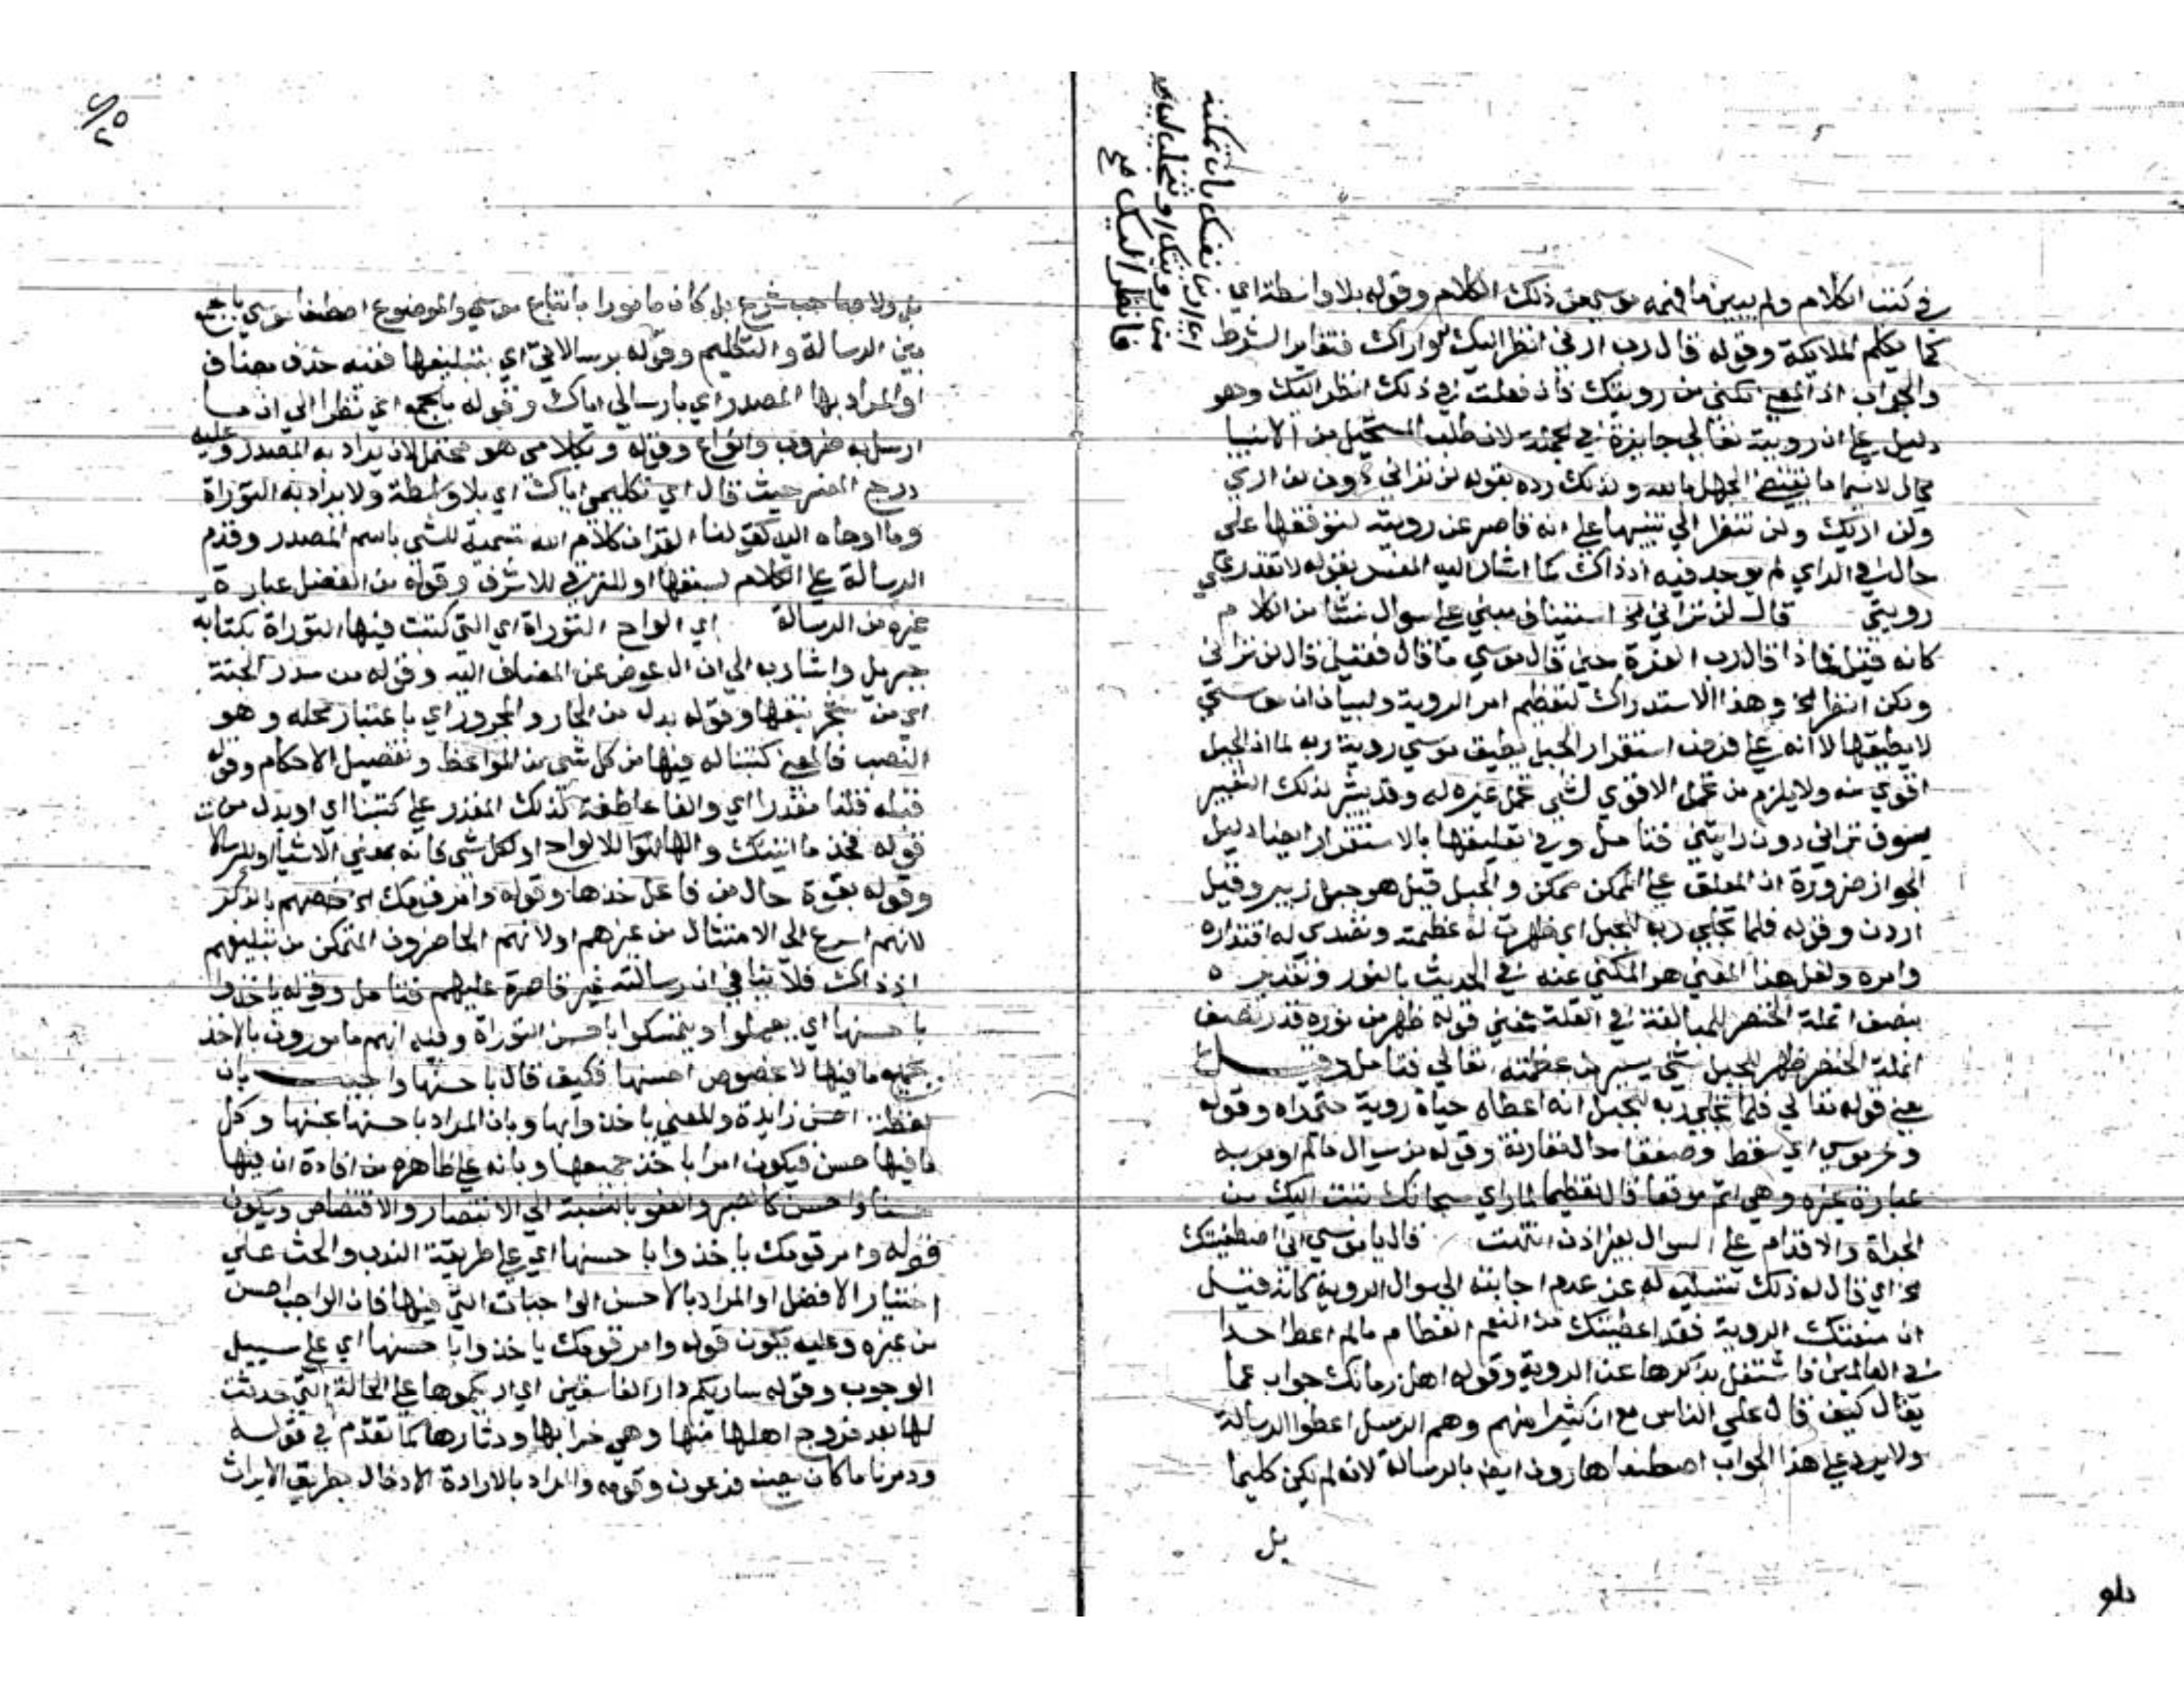 في كتب الكلام ولم يبين ما فهمه موسي من ذلك الكلام وقوله بلا واسطة اي
كما يكلم الملايكة وقوله قال رب ارني انظر اليك لو اراك فتغاير الشرط
والجواب اذ المعني مكني من رويتك فان فعلت بي ذلك انظر اليك وهو
دليل علي ان رويته تعالي جايزة في الجملة لان طلب المستحيل من الانبيا
محال لاسيما ما يقتضي الجهل بالله ولذلك رده بقوله لن تراني دون لن اري
ولن اريك ولن تنظر الي تنبيها علي انه قاصر عن رويته لتوقفها علي
حالة في الراي لم يوجد فيه اذ ذاك كما اشار اليه المفسر بقوله لا تقدر علي
رويتي قال لن تراني الخ استيناف مبني علي سوال نشا من الكلام
كانه قيل فماذا قال رب العزة حين قال موسي ما قال فقيل قال لن تراني
ولكن انظر الخ وهذا الاستدراك لتعظيم امر الروية ولبيان ان موسي
لا يطيقها لا انه علي فرض استقرار الجبل يطيق موسي روية ربه لما ان الجبل
اقوي منه ولا يلزم من تحمل الاقوي لشي تحمل غيره له وقد يشر لذلك التعبير
بسوف تراني دون رايتني فتامل وفي تعليقها بالاستقرار ايضا دليل
الجواز ضرورة ان المعلق علي الممكن ممكن والجبل قيل هو جبل زبير وقيل
اردن وقوله فلما تجلي ربه للجبل اي ظهرت له عظمته وتصدي له اقتداره
وامره ولعل هذا المعني هو المكني عنه في الحديث بالنور وتقديره
بنصف انملة الخنصر للمبالغة في القلة فمعني قوله ظهر من نوره قدر نصف
انملة الخنصر ظهر للجبل شي يسير من عظمته تعالي فتامل وقيل
معني قوله تعالي فلما تجلي ربه للجبل انه اعطاه حياة روية حتي راه وقوله
وخر موسي اي سقط وصعقا حال مقارنة وقوله من سوال ما لم اومر به
عبارة غيره وهي اتم موقعا قال تعظيما لما راي سبحانك تبت اليك من
الجراة والاقدام علي السوال بغير اذن انتهت قال يا موسي اني اصطفيتك
الخ اي قال له ذلك تسلية له عن عدم اجابته الي سوال الروية كانه قيل
ان منعتك الروية فقد اعطيتك من النعم العظام ما لم اعط احدا
من العالمين فاشتغل بذكرها عن الروية وقوله اهل زمانك جواب عما
يقال كيف قال علي الناس مع ان كثيرا منهم وهم الرسل اعطوا الرسالة
ولا يرد علي هذا الجواب اصطفا هارون ايضا بالرسالة لانه لم يكن كليما
بل
ارني نفسك بان تمكنني
من رويتك او تتجلي لي
فانظر اليك صح
بل ولا صاحب شرع بل كان مامورا باتباع موسي والموضوع اصطفا موسي بالجمع
بين الرسالة والتكليم وقوله برسالاتي اي بتبليغها ففيه حذف مضاف
او المراد بها المصدر اي بارسالي اياك وقوله بالجمع اي نظرا الي ان ما
ارسل به ضروب وانواع وقوله وبكلامي هو محتمل لان يراد به المصدر وعليه
درج المفسر حيث قال اي تكليمي اياك اي بلا واسطة ولا يراد به التوراة
وما اوحاه اليه كقولنا القران كلام الله تسمية للشي باسم المصدر وقدم
الرسالة علي الكلام لسبقها او للترقي للاشرف وقوله من الفضل عبارة
غيره من الرسالة اي الواح التوراة اي التي كتبت فيها التوراة بكتابة
جبريل واشار به الي ان ال عوض عن المضاف اليه وقوله من سدر الجنة
اي من شجر نبقها وقوله بدل من الجار والمجرور اي باعتبار محله وهو
النصب فالمعني كتبنا له فيها من كل شي من المواعظ وتفصيل الاحكام وقوله
قبله قلنا مقدرا اي والفا عاطفة لذلك المقدر علي كتبنا اي او بدل من
قوله فخذ ما اتيتك والها اما للالواح او لكل شي فانه بمعني الاشيا او للرسالا
وقوله بقوة حال من فاعل خذها وقوله وامر قومك الخ خصهم بالذكر
لانهم اسرع الي الامتثال من غيرهم او لانهم الحاضرون المتمكن من تبليغهم
اذ ذاك فلا ينافي ان رسالته غير قاصرة عليهم فتامل وقوله ياخذوا
باحسنها اي يعملوا ويتمسكوا باحسن التوراة وفيه انهم مامورون بالاخذ
بجميع ما فيها لا خصوص احسنها فكيف قال باحسنها واجيب بان
لفظة احسن زايدة والمعني ياخذوا بها وبان المراد باحسنها حسنها وكل
ما فيها حسن فيكون امرا باخذ جميعها وبانه علي ظاهره من افادة ان فيها
حسنا واحسن كالصبر والعفو بالنسبة الي الانتصار والاقتصاص ويكون
قوله وامر قومك ياخذوا باحسنها اي علي طريقة الندب والحث علي
اختيار الافضل او المراد بالاحسن الواجبات التي فيها فان الواجب احسن
من غيره وعليه يكون قوله وامر قومك ياخذوا باحسنها اي علي سبيل
الوجوب وقوله ساريكم دار الفاسقين اي اريكموها علي الحالة التي حدثت
لها بعد خروج اهلها منها وهي خرابها ودثارها كما تقدم في قوله
ودمرنا ما كان يصنع فرعون وقومه والمراد بالارادة الادخال بطريق الايراث